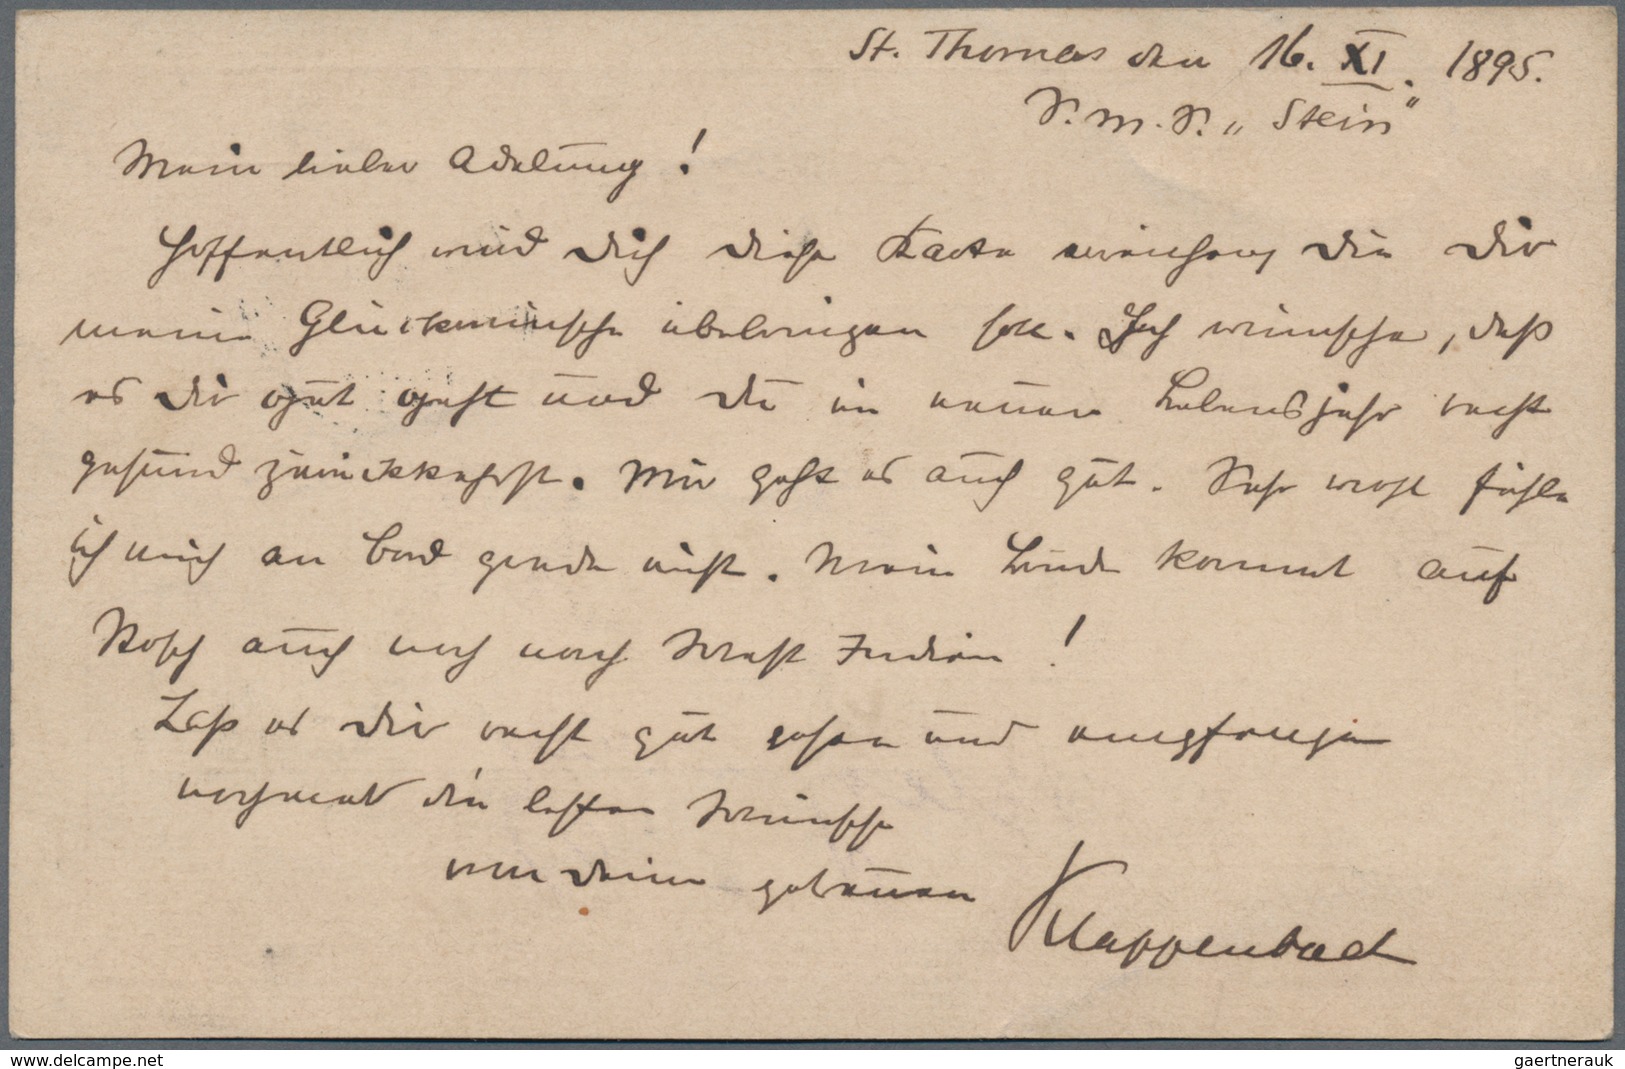 St. Thomas den 16. XI. 1895.
S. M. S. „Stein“
Mein lieber Adelung!
Hoffentlich wird Dich diese Karte erreichen, die Dir
meine Glückwünsche überbringen soll. Ich wünsche, daß
es Dir gut geht und Du im neuen Lebensjahr recht
gesund zurückkehrst. Mir geht es auch gut. Sehr wohl fühle
ich mich an Bord gerade nicht. Mein kommt auf
auch noch nach West Indien!
Laß es Dir recht gut gehen und empfange
nochmals die besten Wünsche
von Deinem getreuen
Klappenbach
www.delcampe.net
gaertnerauk